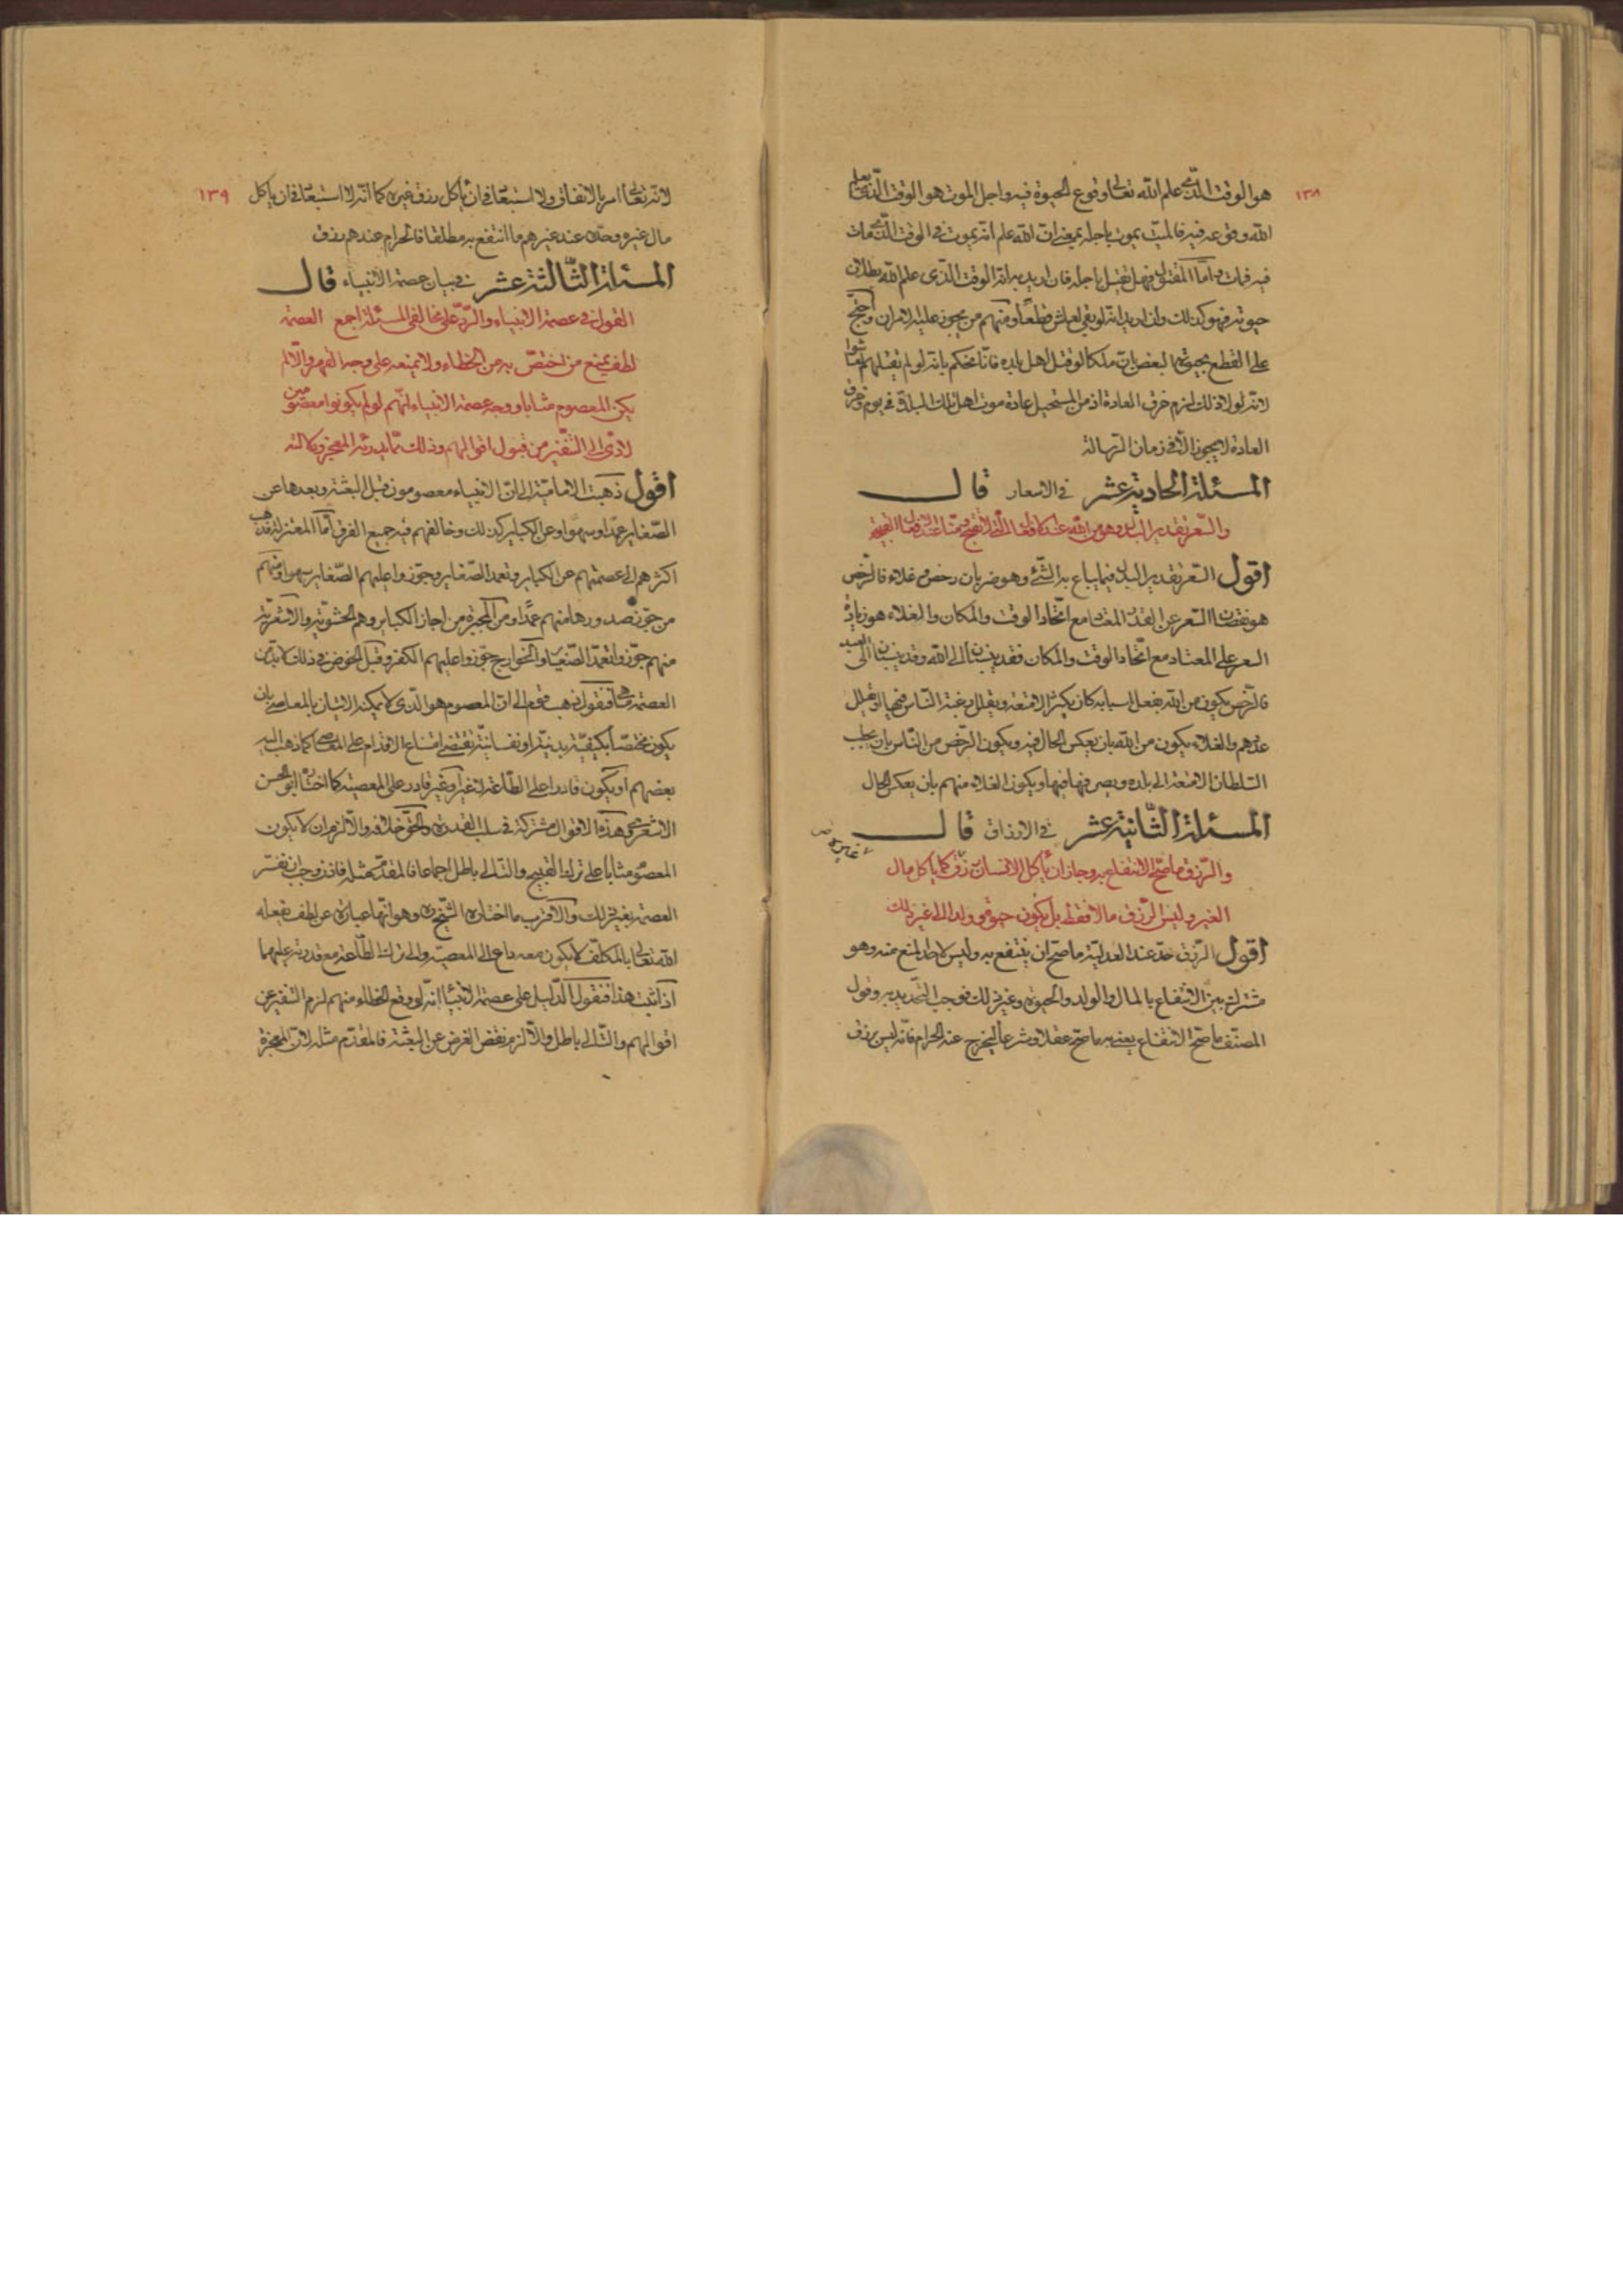 ١٣٨
هو الوقت الذى علم الله تعالى وقوع الحيوة فيه واجل الموت هو الوقت الذى يعلم
الله وقوعه فيه فالميت يموت باجله بمعنى ان الله علم انه يموت فى الوقت الذى مات
فيه فمات واما المقتول فهل يقتل باجله فان اريد به انه الوقت الذى علم الله بطلان
حيوته فهو كذلك وان اريد انه لو بقى لعاش قطعا ومنهم من يجوز عليه الامران واحتج
على القطع بحيوته البعض بان ملكا لو قتل اهل بلده فانا نحكم بانه لو لم يقتلهم لعاشوا
لانه لولا ذلك لزم خرق العادة اذ من المستحيل عادة موت اهل تلك البلدة فى يوم وخرق
العادة لا يجوز الا فى زمان الرسالة
المسئلة الحادية عشر فى الاسعار قال
والسعر تقدير البدل وهو من الله عندنا
اقول السعر تقدير البدل فيما يباع به الشئ وهو ضربان رخص وغلاء فالرخص
هو نقصان السعر عن القدر المعتاد مع اتحاد الوقت والمكان والغلاء هو زيادة
السعر على المعتاد مع اتحاد الوقت والمكان فقد ينسبان الى الله وقد ينسبان الى العبيد
فالرخص يكون من الله بفعل اسبابه كان يكثر الامتعة ويقلل رغبة الناس فيها او تقليل
عددهم والغلاء يكون من الله بان يعكس الحال فيه ويكون الرخص من الناس بان يجلب
السلطان الامتعة الى بلده ويرخص فيها ويكون الغلاء منهم بان يعكس الحال
المسئلة الثانية عشر فى الارزاق قال
والرزق ما صح الانتفاع به وجاز ان ياكل الانسان رزق كما ياكل مال
الغير وليس الرزق مالا فقط بل يكون حيوة وولدا الى غير ذلك
اقول الرزق حده عند العدلية ما صح ان ينتفع به وليس لاحد المنع منه وهو
مشترك بين الانتفاع بالمال والولد والحيوة وغير ذلك فوجب التحديد به وقول
المصنف ما صح الانتفاع يعنى به ما صح عقلا وشرعا ليخرج عنه الحرام فانه ليس برزق
١٣٩
لانه تعالى امر بالانفاق ولا استبعاد فى ان ياكل رزق غيره كما انه لا استبعاد فى ان ياكل
مال غيره وحده عند غيرهم ما انتفع به مطلقا فالحرام عندهم رزق
المسئلة الثالثة عشر فى بيان عصمة الانبياء قال
القول فى عصمة الانبياء والرد على مخالفى المسئلة اجمع العصمة
لطف يمنع من اختص به من الخطاء ولا يمنعه على وجه القهر والا لم
يكن المعصوم مثابا ووجه عصمة الانبياء انهم لو لم يكونوا معصومين
لادى الى التنفير من قبول اقوالهم وذلك
اقول ذهبت الامامية الى ان الانبياء معصومون قبل البعثة وبعدها عن
الصغاير عمدا وسهوا وعن الكباير كذلك وخالفهم فيه جميع الفرق اما المعتزلة فذهب
اكثرهم الى عصمتهم عن الكباير وتعمد الصغاير وجوزوا عليهم الصغاير سهوا ومنهم
من جوز صدورها منهم عمدا ومن المجبرة من اجاز الكباير وهم الحشوية والاشعرية
منهم جوزوا تعمد الصغاير والخوارج جوزوا عليهم الكفر وقبل الخوض فى ذلك لا بد من
العصمة ما هى فنقول ذهب قوم الى ان المعصوم هو الذى لا يمكنه الاتيان بالمعاصى بان
يكون مختصا بكيفية بدنية او نفسانية تقتضى امتناع الاقدام على المعاصى كما ذهب اليه
بعضهم او يكون قادرا على الطاعة لا غير وغير قادر على المعصية كما اختاره ابو الحسن
الاشعرى وهذه الاقوال مشتركة فى سلب القدرة والحق خلافه والا لزم ان لا يكون
المعصوم مثابا على ترك القبيح والتالى باطل اجماعا فالمقدم مثله فاذن وجب ان تفسر
العصمة بغير ذلك والاقرب ما اختاره الشيخ وهو انها عبارة عن لطف يفعله
الله تعالى بالمكلف لا يكون معه داع الى المعصية والى ترك الطاعة مع قدرته عليهما
اذا ثبت هذا فنقول الدليل على عصمة الانبياء انه لو وقع الخطاء منهم لزم التنفير عن
اقوالهم والتالى باطل والا لزم نقض الغرض عن البعثة فالمقدم مثله لان المعجزة